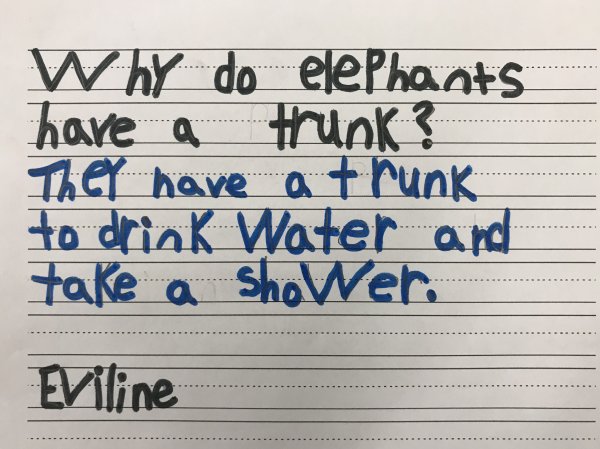 Why do elephants
have a trunk?
They have a trunk
to drink water and
take a shower.
Eviline